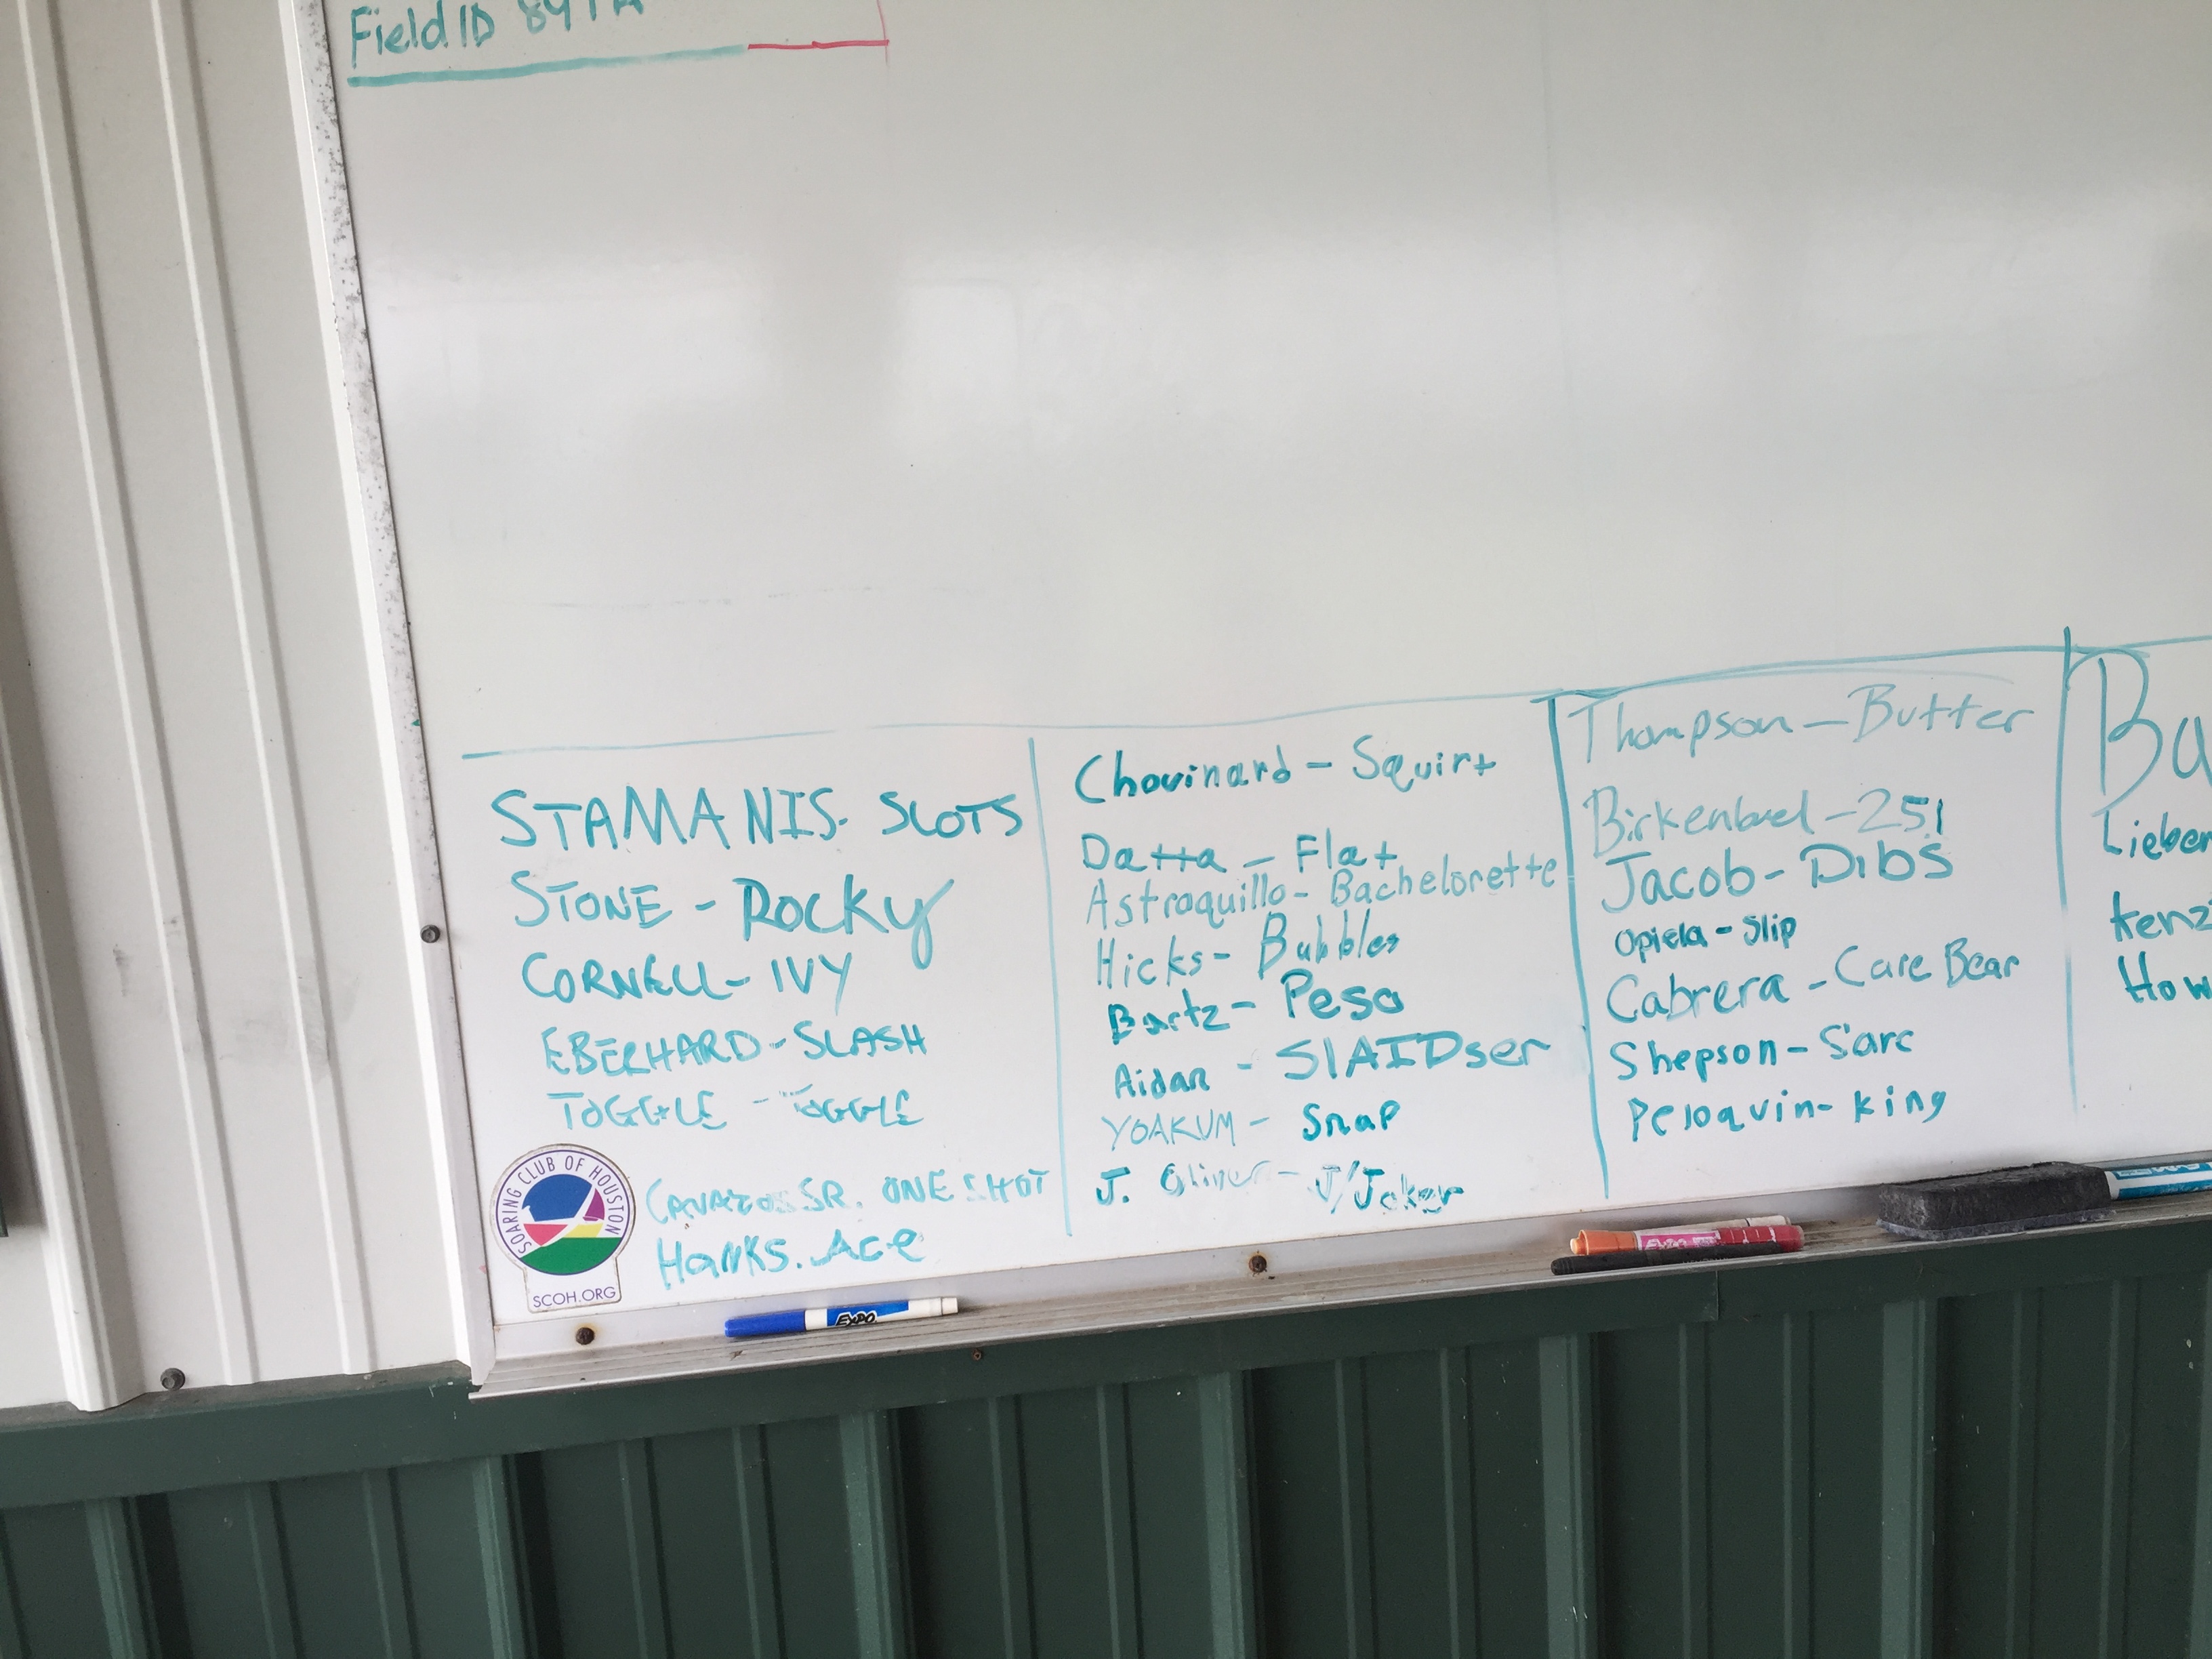 Field ID 
STAMANIS- SLOTS
STONE - ROCKY
CORNELL- IVY
EBERHARD-SLASH
TOGGLE - TOGGLE
SR. ONE SHOT
HANKS. Ace
SOARING CLUB OF HOUSTON
SCOH.ORG
Chouinard - Squirt
Datta - Flat
Astroquillo- Bachelorette
Hicks- Bubbles
Bartz- Peso
Aidan - SlAIDser
YOAKUM - Snap
J. Oliner - J/Joker
Thompson - Butter
Birkenbuel - 251
Jacob - Dibs
Opiela - Slip
Cabrera - Care Bear
Shepson - Sarc
Peloquin- King
Ba
Lieber
Kenz
How
EXPO
EXPO